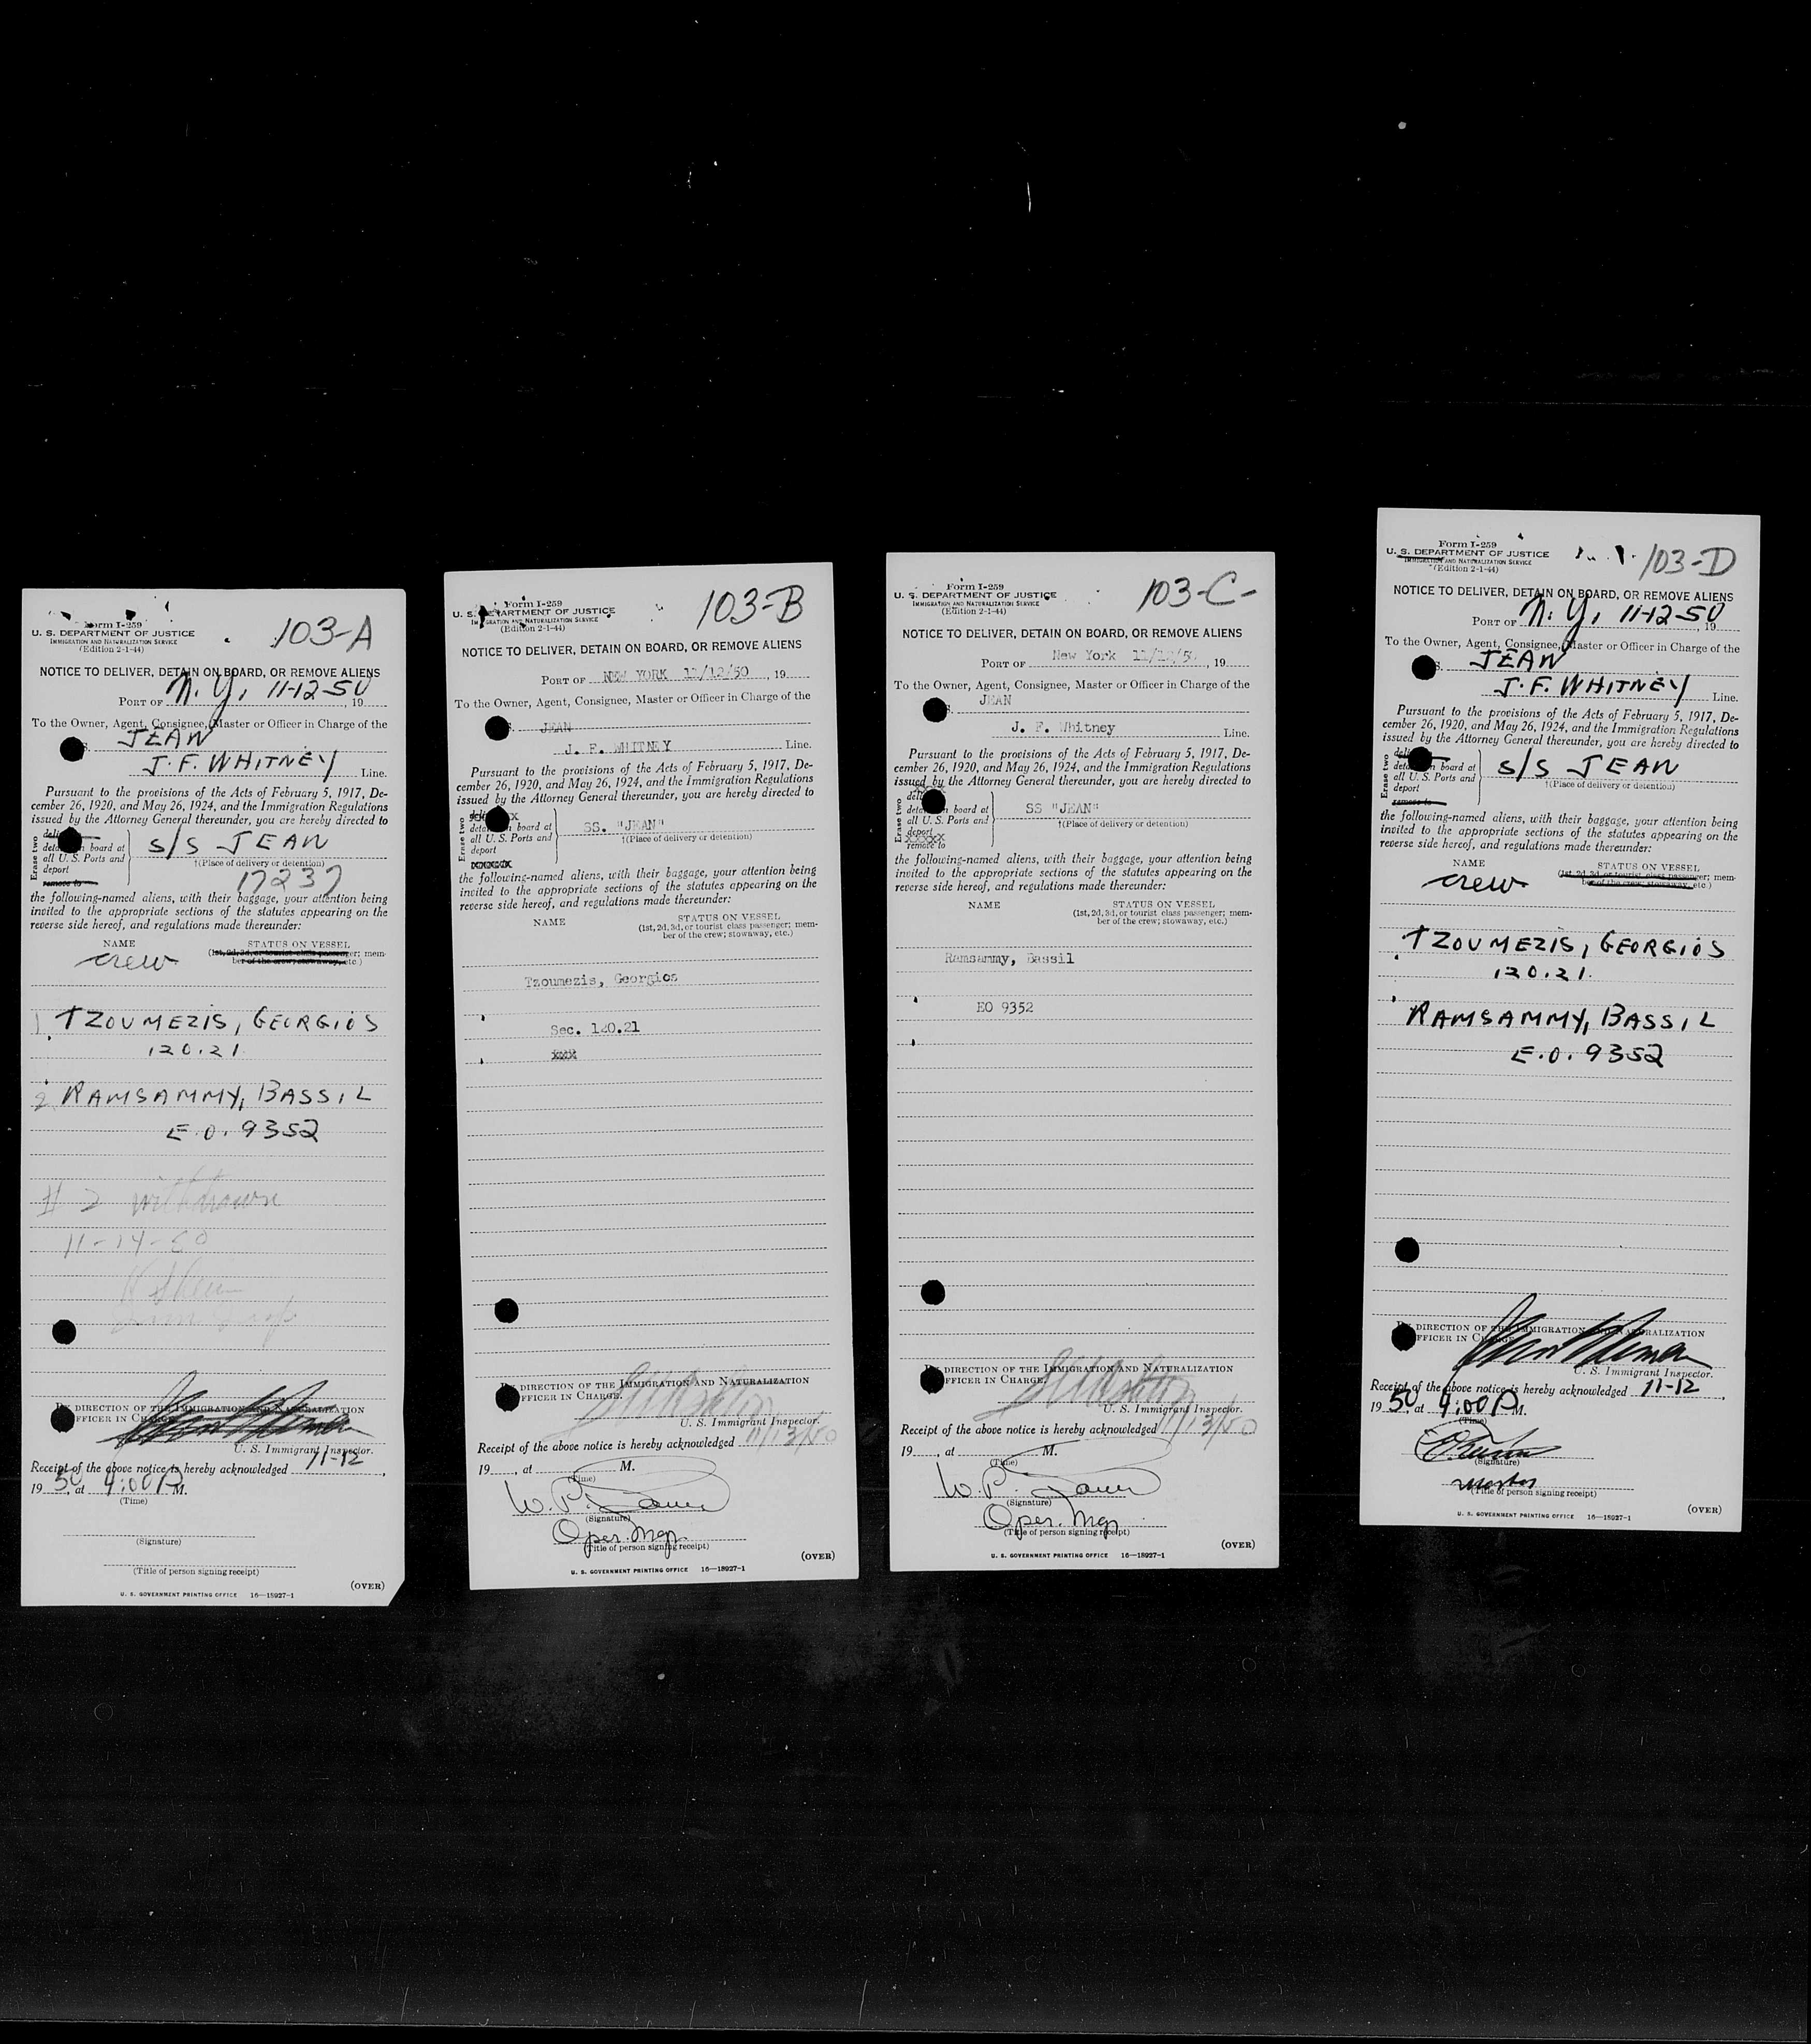 Form I-259
U. S. DEPARTMENT OF JUSTICE
IMMIGRATION AND NATURALIZATION SERVICE
(Edition 2-1-44)
103-A
NOTICE TO DELIVER, DETAIN ON BOARD, OR REMOVE ALIENS
PORT OF N.Y, 11-12-50, 19
To the Owner, Agent, Consignee, Master or Officer in Charge of the
JEAN
J. F. WHITNEY Line.
Pursuant to the provisions of the Acts of February 5, 1917, De-
cember 26, 1920, and May 26, 1924, and the Immigration Regulations
issued by the Attorney General thereunder, you are hereby directed to
Erase two
board at
all U. S. Ports and
deport
remove to
S/S JEAN
†(Place of delivery or detention)
17237
the following-named aliens, with their baggage, your attention being
invited to the appropriate sections of the statutes appearing on the
reverse side hereof, and regulations made thereunder:
NAME STATUS ON VESSEL
crew (1st, 2d, 3d, or tourist class passenger; mem-
ber of the crew; stowaway, etc.)
1 TZOUMEZIS, GEORGIOS
120.21
2 RAMSAMMY, BASSIL
E.O. 9352
# 2 withdrawn
11-14-50
BY DIRECTION OF THE IMMIGRATION AND NATURALIZATION
OFFICER IN CHARGE.
U. S. Immigrant Inspector.
Receipt of the above notice is hereby acknowledged 11-12,
19 50, at 9:00 P M.
(Time)
(Signature)
(Title of person signing receipt)
(OVER)
U. S. GOVERNMENT PRINTING OFFICE 16—18927-1
Form I-259
U. S. DEPARTMENT OF JUSTICE
IMMIGRATION AND NATURALIZATION SERVICE
(Edition 2-1-44)
103-B
NOTICE TO DELIVER, DETAIN ON BOARD, OR REMOVE ALIENS
PORT OF NEW YORK 11/12/50, 19
To the Owner, Agent, Consignee, Master or Officer in Charge of the
JEAN
J. F. WHITNEY Line.
Pursuant to the provisions of the Acts of February 5, 1917, De-
cember 26, 1920, and May 26, 1924, and the Immigration Regulations
issued by the Attorney General thereunder, you are hereby directed to
Erase two
board at
all U. S. Ports and
deport
SS. "JEAN"
†(Place of delivery or detention)
the following-named aliens, with their baggage, your attention being
invited to the appropriate sections of the statutes appearing on the
reverse side hereof, and regulations made thereunder:
NAME STATUS ON VESSEL
(1st, 2d, 3d, or tourist class passenger; mem-
ber of the crew; stowaway, etc.)
Tzoumezis, Georgios
Sec. 120.21
xxx
BY DIRECTION OF THE IMMIGRATION AND NATURALIZATION
OFFICER IN CHARGE.
U. S. Immigrant Inspector.
Receipt of the above notice is hereby acknowledged 11/13/50
19, at M.
(Time)
W. P.
(Signature)
Oper. Mgr.
(Title of person signing receipt)
(OVER)
U. S. GOVERNMENT PRINTING OFFICE 16—18927-1
Form I-259
U. S. DEPARTMENT OF JUSTICE
IMMIGRATION AND NATURALIZATION SERVICE
(Edition 2-1-44)
103-C-
NOTICE TO DELIVER, DETAIN ON BOARD, OR REMOVE ALIENS
PORT OF New York 11/12/5, 19
To the Owner, Agent, Consignee, Master or Officer in Charge of the
JEAN
J. F. Whitney Line.
Pursuant to the provisions of the Acts of February 5, 1917, De-
cember 26, 1920, and May 26, 1924, and the Immigration Regulations
issued by the Attorney General thereunder, you are hereby directed to
Erase two
board at
all U. S. Ports and
deport
remove to
SS "JEAN"
†(Place of delivery or detention)
the following-named aliens, with their baggage, your attention being
invited to the appropriate sections of the statutes appearing on the
reverse side hereof, and regulations made thereunder:
NAME STATUS ON VESSEL
(1st, 2d, 3d, or tourist class passenger; mem-
ber of the crew; stowaway, etc.)
Ramsammy, Bassil
EO 9352
BY DIRECTION OF THE IMMIGRATION AND NATURALIZATION
OFFICER IN CHARGE.
U. S. Immigrant Inspector.
Receipt of the above notice is hereby acknowledged 11/13/50
19, at M.
(Time)
W. P.
(Signature)
Oper. Mgr
(Title of person signing receipt)
(OVER)
U. S. GOVERNMENT PRINTING OFFICE 16—18927-1
Form I-259
U. S. DEPARTMENT OF JUSTICE
IMMIGRATION AND NATURALIZATION SERVICE
(Edition 2-1-44)
103-D
NOTICE TO DELIVER, DETAIN ON BOARD, OR REMOVE ALIENS
PORT OF N.Y, 11-12-50, 19
To the Owner, Agent, Consignee, Master or Officer in Charge of the
JEAN
J. F. WHITNEY Line.
Pursuant to the provisions of the Acts of February 5, 1917, De-
cember 26, 1920, and May 26, 1924, and the Immigration Regulations
issued by the Attorney General thereunder, you are hereby directed to
Erase two
board at
all U. S. Ports and
deport
remove to
S/S JEAN
†(Place of delivery or detention)
the following-named aliens, with their baggage, your attention being
invited to the appropriate sections of the statutes appearing on the
reverse side hereof, and regulations made thereunder:
NAME STATUS ON VESSEL
crew (1st, 2d, 3d, or tourist class passenger; mem-
ber of the crew; stowaway, etc.)
TZOUMEZIS, GEORGIOS
120.21.
RAMSAMMY, BASSIL
E.O. 9352
BY DIRECTION OF THE IMMIGRATION AND NATURALIZATION
OFFICER IN CHARGE.
U. S. Immigrant Inspector.
Receipt of the above notice is hereby acknowledged 11-12,
19 50, at 9:00 P M.
(Time)
(Signature)
(Title of person signing receipt)
(OVER)
U. S. GOVERNMENT PRINTING OFFICE 16—18927-1